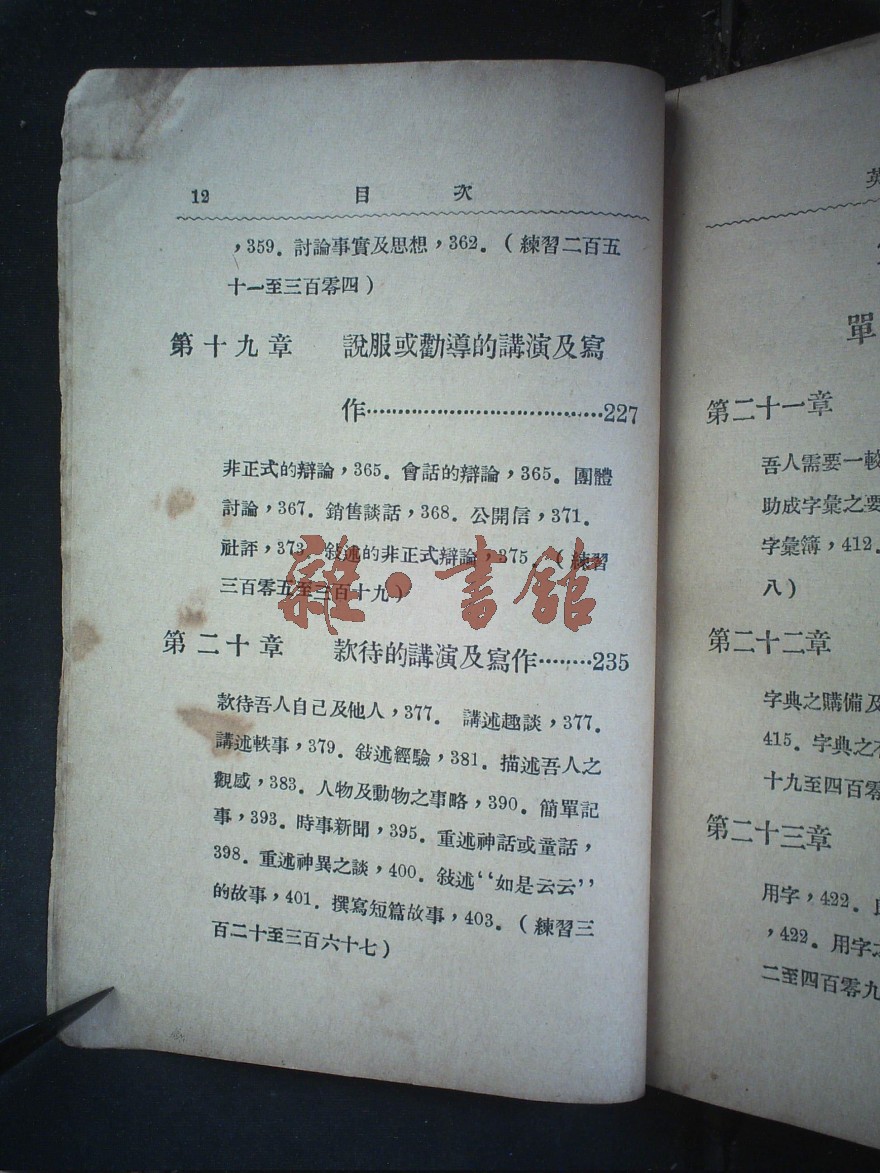 12 目 次
，359．討論事實及思想，362．（練習二百五
十一至三百零四）
第十九章 說服或勸導的講演及寫
作……………………………227
非正式的辯論，365．會話的辯論，365．團體
討論，367．銷售談話，368．公開信，371．
社評，373．敍述的非正式辯論，375．（練習
三百零五至三百十九）
雜·書館
第二十章 款待的講演及寫作………235
款待吾人自己及他人，377．講述趣談，377．
講述軼事，379．敍述經驗，381．描述吾人之
觀感，383．人物及動物之事略，390．簡單記
事，393．時事新聞，395．重述神話或童話，
398．重述神異之談，400．敍述“如是云云”
的故事，401．撰寫短篇故事，403．（練習三
百二十至三百六十七）
英
單
第二十一章
吾人需要一較
助成字彙之要
字彙簿，412．
八）
第二十二章
字典之購備及
415．字典之
十九至四百零
第二十三章
用字，422．
，422．用字之
二至四百零九